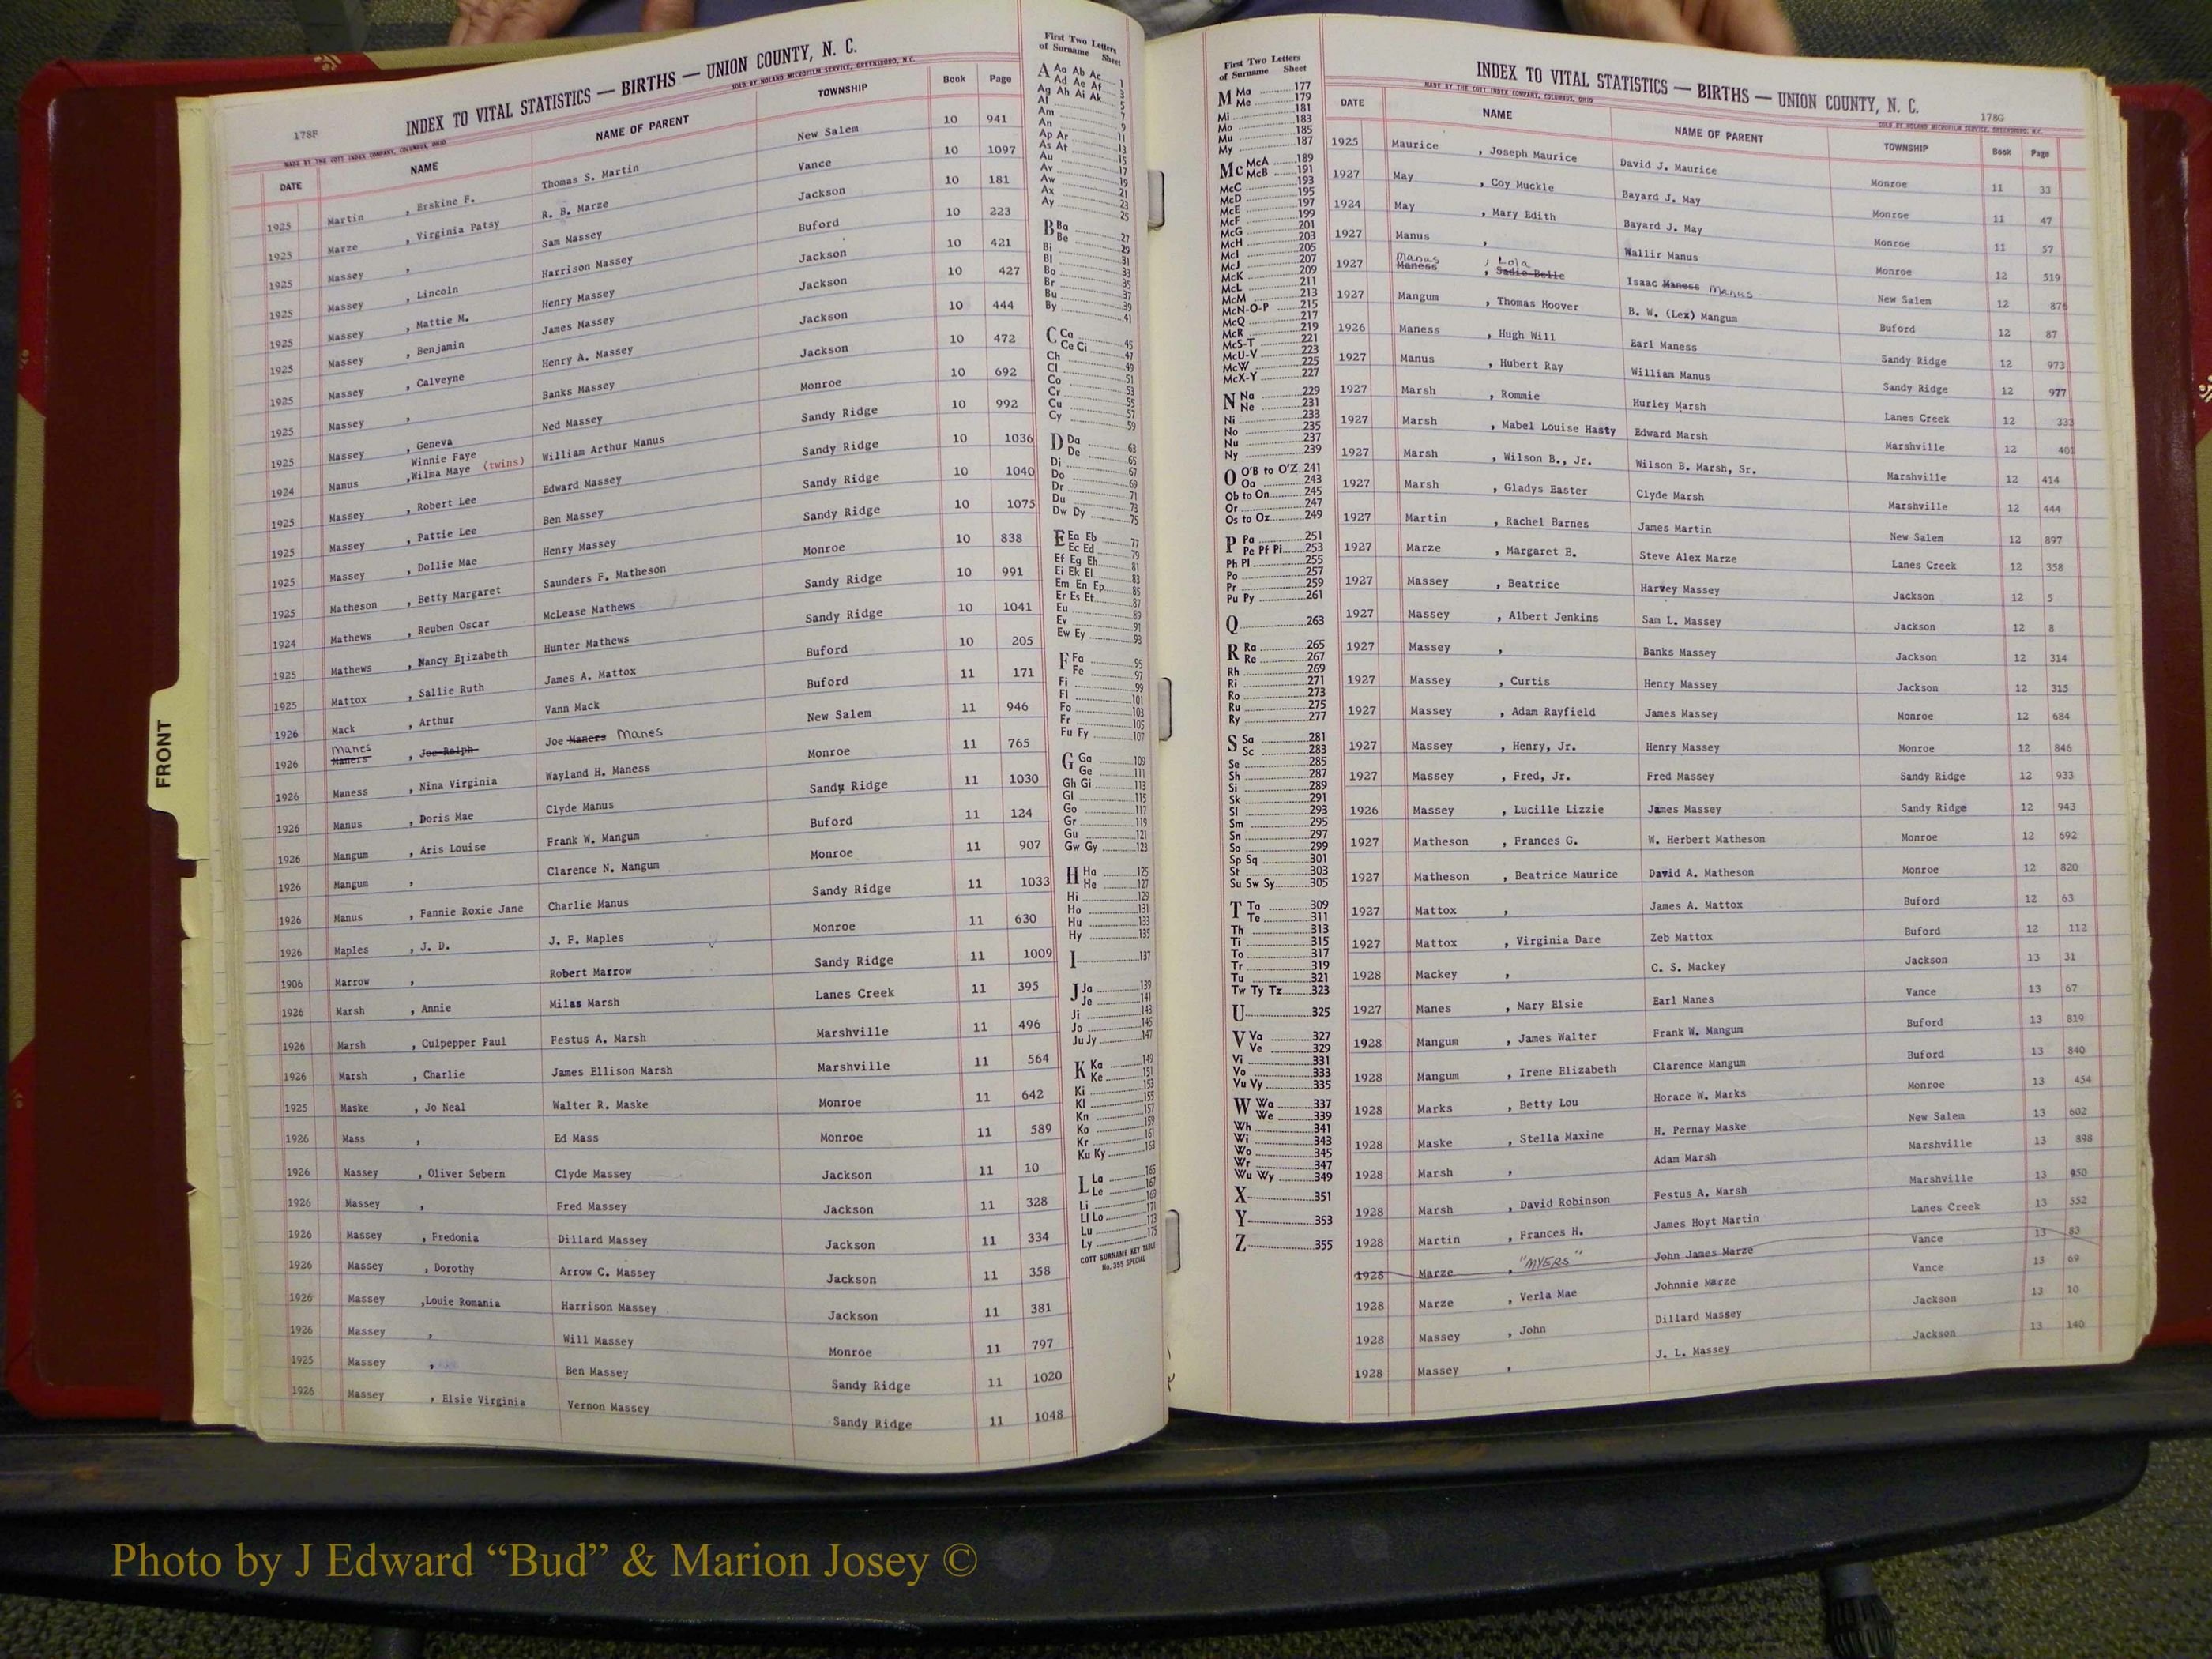 178F
INDEX TO VITAL STATISTICS — BIRTHS — UNION COUNTY, N. C.
MADE BY THE COTT INDEX COMPANY, COLUMBUS, OHIO SOLD BY NOLAND MICROFILM SERVICE, GREENSBORO, N.C.
DATE NAME NAME OF PARENT TOWNSHIP Book Page
1925 Martin , Erskine F. Thomas S. Martin New Salem 10 941
1925 Marze , Virginia Patsy R. B. Marze Vance 10 1097
1925 Massey , Sam Massey Jackson 10 181
1925 Massey , Lincoln Harrison Massey Buford 10 223
1925 Massey , Mattie M. Henry Massey Jackson 10 421
1925 Massey , Benjamin James Massey Jackson 10 427
1925 Massey , Calveyne Henry A. Massey Jackson 10 444
1925 Massey , Banks Massey Jackson 10 472
1925 Massey , Geneva Ned Massey Monroe 10 692
Winnie Faye
1924 Manus ,Wilma Maye (twins) William Arthur Manus Sandy Ridge 10 992
1925 Massey , Robert Lee Edward Massey Sandy Ridge 10 1036
1925 Massey , Pattie Lee Ben Massey Sandy Ridge 10 1040
1925 Massey , Dollie Mae Henry Massey Sandy Ridge 10 1075
1925 Matheson , Betty Margaret Saunders F. Matheson Monroe 10 838
1924 Mathews , Reuben Oscar McLease Mathews Sandy Ridge 10 991
1925 Mathews , Nancy Elizabeth Hunter Mathews Sandy Ridge 10 1041
1925 Mattox , Sallie Ruth James A. Mattox Buford 10 205
1926 Mack , Arthur Vann Mack Buford 11 171
Manes
1926 Maners , Joe Ralph Joe Maners Manes New Salem 11 946
1926 Maness , Nina Virginia Wayland H. Maness Monroe 11 765
1926 Manus , Doris Mae Clyde Manus Sandy Ridge 11 1030
1926 Mangum , Aris Louise Frank W. Mangum Buford 11 124
1926 Mangum , Clarence N. Mangum Monroe 11 907
1926 Manus , Fannie Roxie Jane Charlie Manus Sandy Ridge 11 1033
1926 Maples , J. D. J. F. Maples Monroe 11 630
1906 Marrow , Robert Marrow Sandy Ridge 11 1009
1926 Marsh , Annie Milas Marsh Lanes Creek 11 395
1926 Marsh , Culpepper Paul Festus A. Marsh Marshville 11 496
1926 Marsh , Charlie James Ellison Marsh Marshville 11 564
1925 Maske , Jo Neal Walter R. Maske Monroe 11 642
1926 Mass , Ed Mass Monroe 11 589
1926 Massey , Oliver Sebern Clyde Massey Jackson 11 10
1926 Massey , Fred Massey Jackson 11 328
1926 Massey , Fredonia Dillard Massey Jackson 11 334
1926 Massey , Dorothy Arrow C. Massey Jackson 11 358
1926 Massey ,Louie Romania Harrison Massey Jackson 11 381
1926 Massey , Will Massey Monroe 11 797
1925 Massey , Ben Massey Sandy Ridge 11 1020
1926 Massey , Elsie Virginia Vernon Massey Sandy Ridge 11 1048
FRONT
First Two Letters
of Surname Sheet
A Aa Ab Ac 1
Ad Ae Af 3
Ag Ah Ai Ak 5
Al 7
Am 9
An 11
Ap Ar 13
As At 15
Au 17
Av 19
Aw 21
Ax 23
Ay 25
B Ba 27
Be 29
Bi 31
Bl 33
Bo 35
Br 37
Bu 39
By 41
C Ca 45
Ce Ci 47
Ch 49
Cl 51
Co 53
Cr 55
Cu 57
Cy 59
D Da 63
De 65
Di 67
Do 69
Dr 71
Du 73
Dw Dy 75
E Ea Eb 77
Ec Ed 79
Ef Eg Eh 81
Ei Ek El 83
Em En Ep 85
Er Es Et 87
Eu 89
Ev 91
Ew Ey 93
F Fa 95
Fe 97
Fi 99
Fl 101
Fo 103
Fr 105
Fu Fy 107
G Ga 109
Ge 111
Gh Gi 113
Gl 115
Go 117
Gr 119
Gu 121
Gw Gy 123
H Ha 125
He 127
Hi 129
Ho 131
Hu 133
Hy 135
I 137
J Ja 139
Je 141
Ji 143
Jo 145
Ju Jy 147
K Ka 149
Ke 151
Ki 153
Kl 155
Kn 157
Ko 159
Kr 161
Ku Ky 163
L La 165
Le 167
Li 169
Ll Lo 171
Lu 173
Ly 175
COTT SURNAME KEY TABLE
No. 355 SPECIAL
First Two Letters
of Surname Sheet
M Ma 177
Me 179
Mi 181
Mo 183
Mu 185
My 187
Mc McA 189
McB 191
McC 193
McD 195
McE 197
McF 199
McG 201
McH 203
McI 205
McJ 207
McK 209
McL 211
McM 213
McN-O-P 215
McQ 217
McR 219
McS-T 221
McU-V 223
McW 225
McX-Y 227
N Na 229
Ne 231
Ni 233
No 235
Nu 237
Ny 239
O O'B to O'Z 241
Oa 243
Ob to On 245
Or 247
Os to Oz 249
P Pa 251
Pe Pf Pi 253
Ph Pl 255
Po 257
Pr 259
Pu Py 261
Q 263
R Ra 265
Re 267
Rh 269
Ri 271
Ro 273
Ru 275
Ry 277
S Sa 281
Sc 283
Se 285
Sh 287
Si 289
Sk 291
Sl 293
Sm 295
Sn 297
So 299
Sp Sq 301
St 303
Su Sw Sy 305
T Ta 309
Te 311
Th 313
Ti 315
To 317
Tr 319
Tu 321
Tw Ty Tz 323
U 325
V Va 327
Ve 329
Vi 331
Vo 333
Vu Vy 335
W Wa 337
We 339
Wh 341
Wi 343
Wo 345
Wr 347
Wu Wy 349
X 351
Y 353
Z 355
INDEX TO VITAL STATISTICS — BIRTHS — UNION COUNTY, N. C.
178G
MADE BY THE COTT INDEX COMPANY, COLUMBUS, OHIO SOLD BY NOLAND MICROFILM SERVICE, GREENSBORO, N.C.
DATE NAME NAME OF PARENT TOWNSHIP Book Page
1925 Maurice , Joseph Maurice David J. Maurice Monroe 11 33
1927 May , Coy Muckle Bayard J. May Monroe 11 47
1924 May , Mary Edith Bayard J. May Monroe 11 57
1927 Manus , Wallir Manus Monroe 12 519
Manus , Lola
1927 Maness , Sadie Belle Isaac Maness Manus New Salem 12 876
1927 Mangum , Thomas Hoover B. W. (Lex) Mangum Buford 12 87
1926 Maness , Hugh Will Earl Maness Sandy Ridge 12 973
1927 Manus , Hubert Ray William Manus Sandy Ridge 12 977
1927 Marsh , Rommie Hurley Marsh Lanes Creek 12 333
1927 Marsh , Mabel Louise Hasty Edward Marsh Marshville 12 401
1927 Marsh , Wilson B., Jr. Wilson B. Marsh, Sr. Marshville 12 414
1927 Marsh , Gladys Easter Clyde Marsh Marshville 12 444
1927 Martin , Rachel Barnes James Martin New Salem 12 897
1927 Marze , Margaret E. Steve Alex Marze Lanes Creek 12 358
1927 Massey , Beatrice Harvey Massey Jackson 12 5
1927 Massey , Albert Jenkins Sam L. Massey Jackson 12 8
1927 Massey , Banks Massey Jackson 12 314
1927 Massey , Curtis Henry Massey Jackson 12 315
1927 Massey , Adam Rayfield James Massey Monroe 12 684
1927 Massey , Henry, Jr. Henry Massey Monroe 12 846
1927 Massey , Fred, Jr. Fred Massey Sandy Ridge 12 933
1926 Massey , Lucille Lizzie James Massey Sandy Ridge 12 943
1927 Matheson , Frances G. W. Herbert Matheson Monroe 12 692
1927 Matheson , Beatrice Maurice David A. Matheson Monroe 12 820
1927 Mattox , James A. Mattox Buford 12 63
1927 Mattox , Virginia Dare Zeb Mattox Buford 12 112
1928 Mackey , C. S. Mackey Jackson 13 31
1927 Manes , Mary Elsie Earl Manes Vance 13 67
1928 Mangum , James Walter Frank W. Mangum Buford 13 819
1928 Mangum , Irene Elizabeth Clarence Mangum Buford 13 840
1928 Marks , Betty Lou Horace W. Marks Monroe 13 454
1928 Maske , Stella Maxine H. Pernay Maske New Salem 13 602
1928 Marsh , Adam Marsh Marshville 13 898
1928 Marsh , David Robinson Festus A. Marsh Marshville 13 950
1928 Martin , Frances H. James Hoyt Martin Lanes Creek 13 552
1928 Marze , "MYERS" John James Marze Vance 13 83
1928 Marze , Verla Mae Johnnie Marze Vance 13 69
1928 Massey , John Dillard Massey Jackson 13 10
1928 Massey , J. L. Massey Jackson 13 140
Photo by J Edward “Bud” & Marion Josey ©